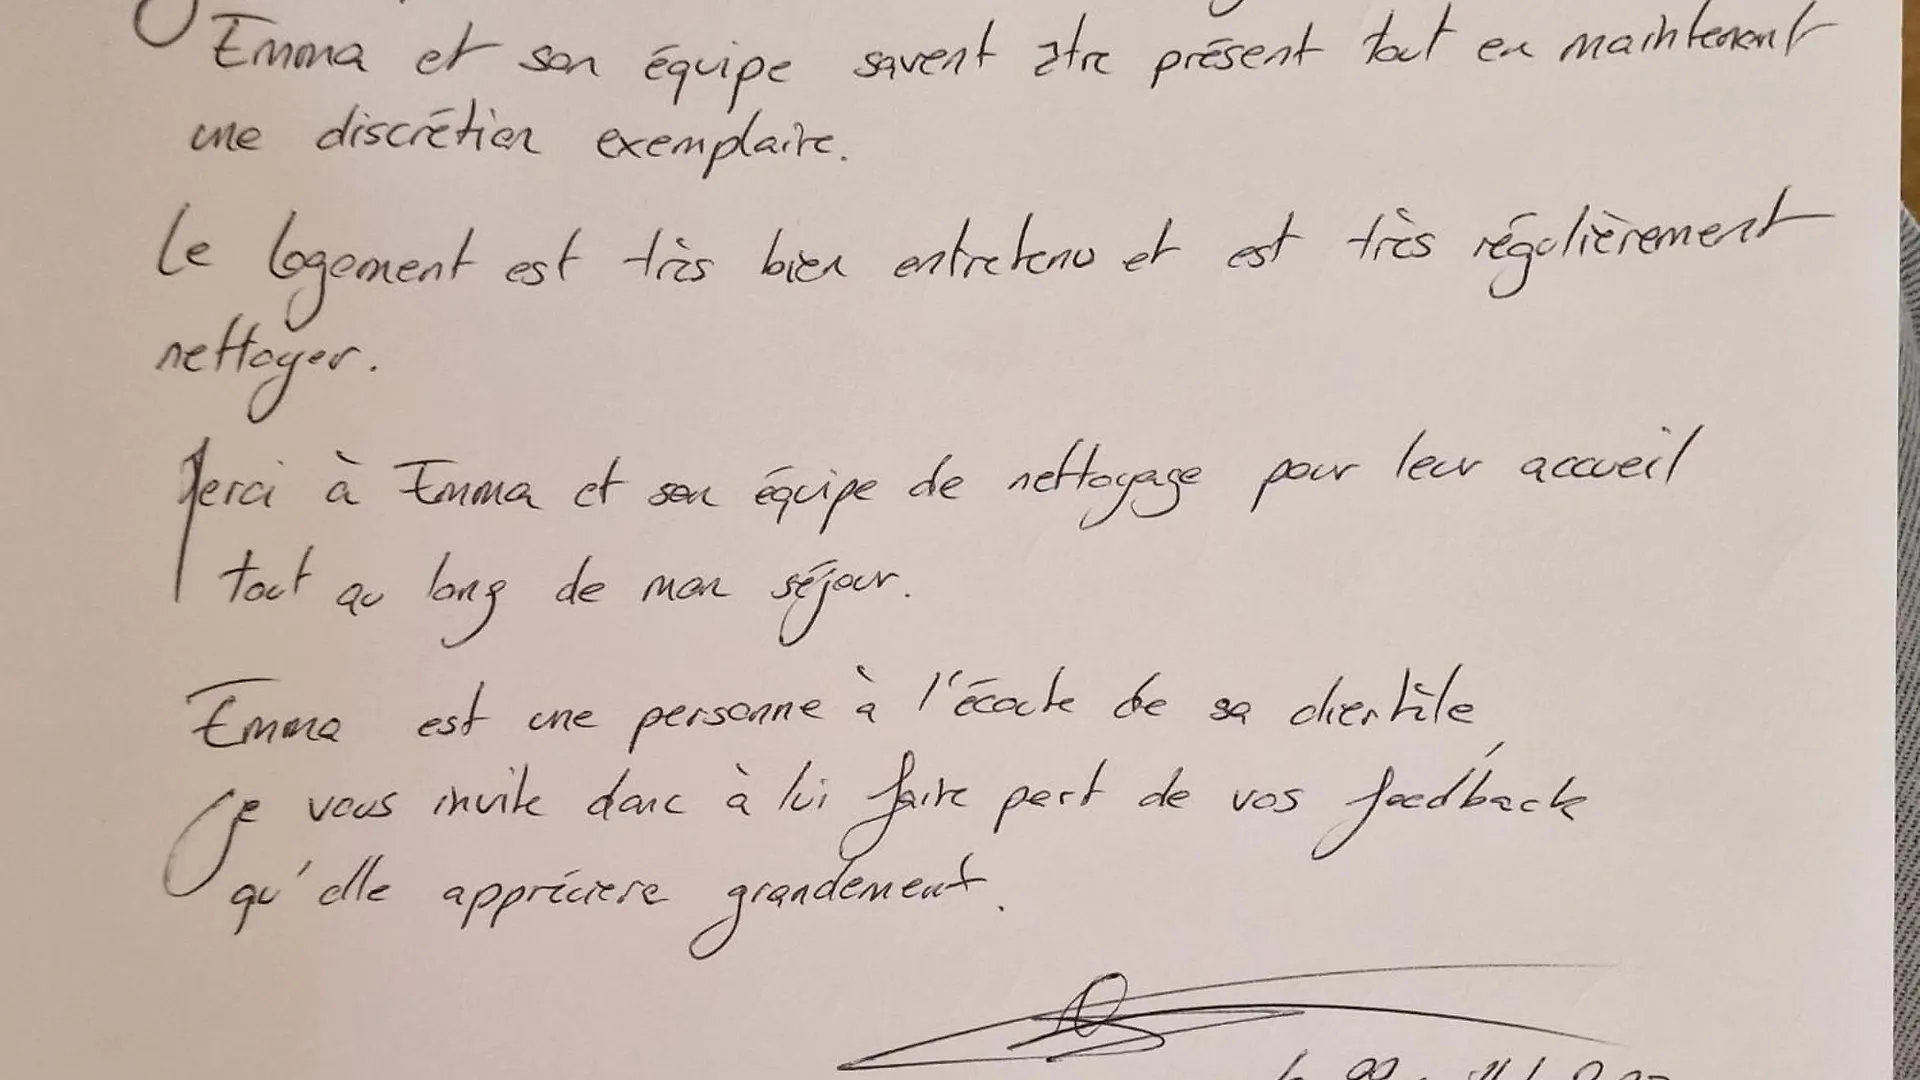 Emma et son équipe savent être présent tout en maintenant
une discrétion exemplaire.
Le logement est très bien entretenu et est très régulièrement
nettoyer.
Merci à Emma et son équipe de nettoyage pour leur accueil
tout au long de mon séjour.
Emma est une personne à l'écoute de sa clientèle,
je vous invite donc à lui faire part de vos feedback
qu'elle appréciera grandement.